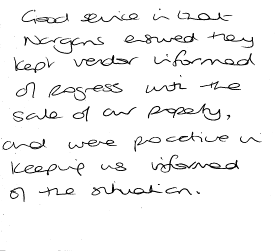 Good service in that
Nargans ensured they
kept vendor informed
of progress with the
sale of our property,
and were proactive in
keeping us informed
of the situation.